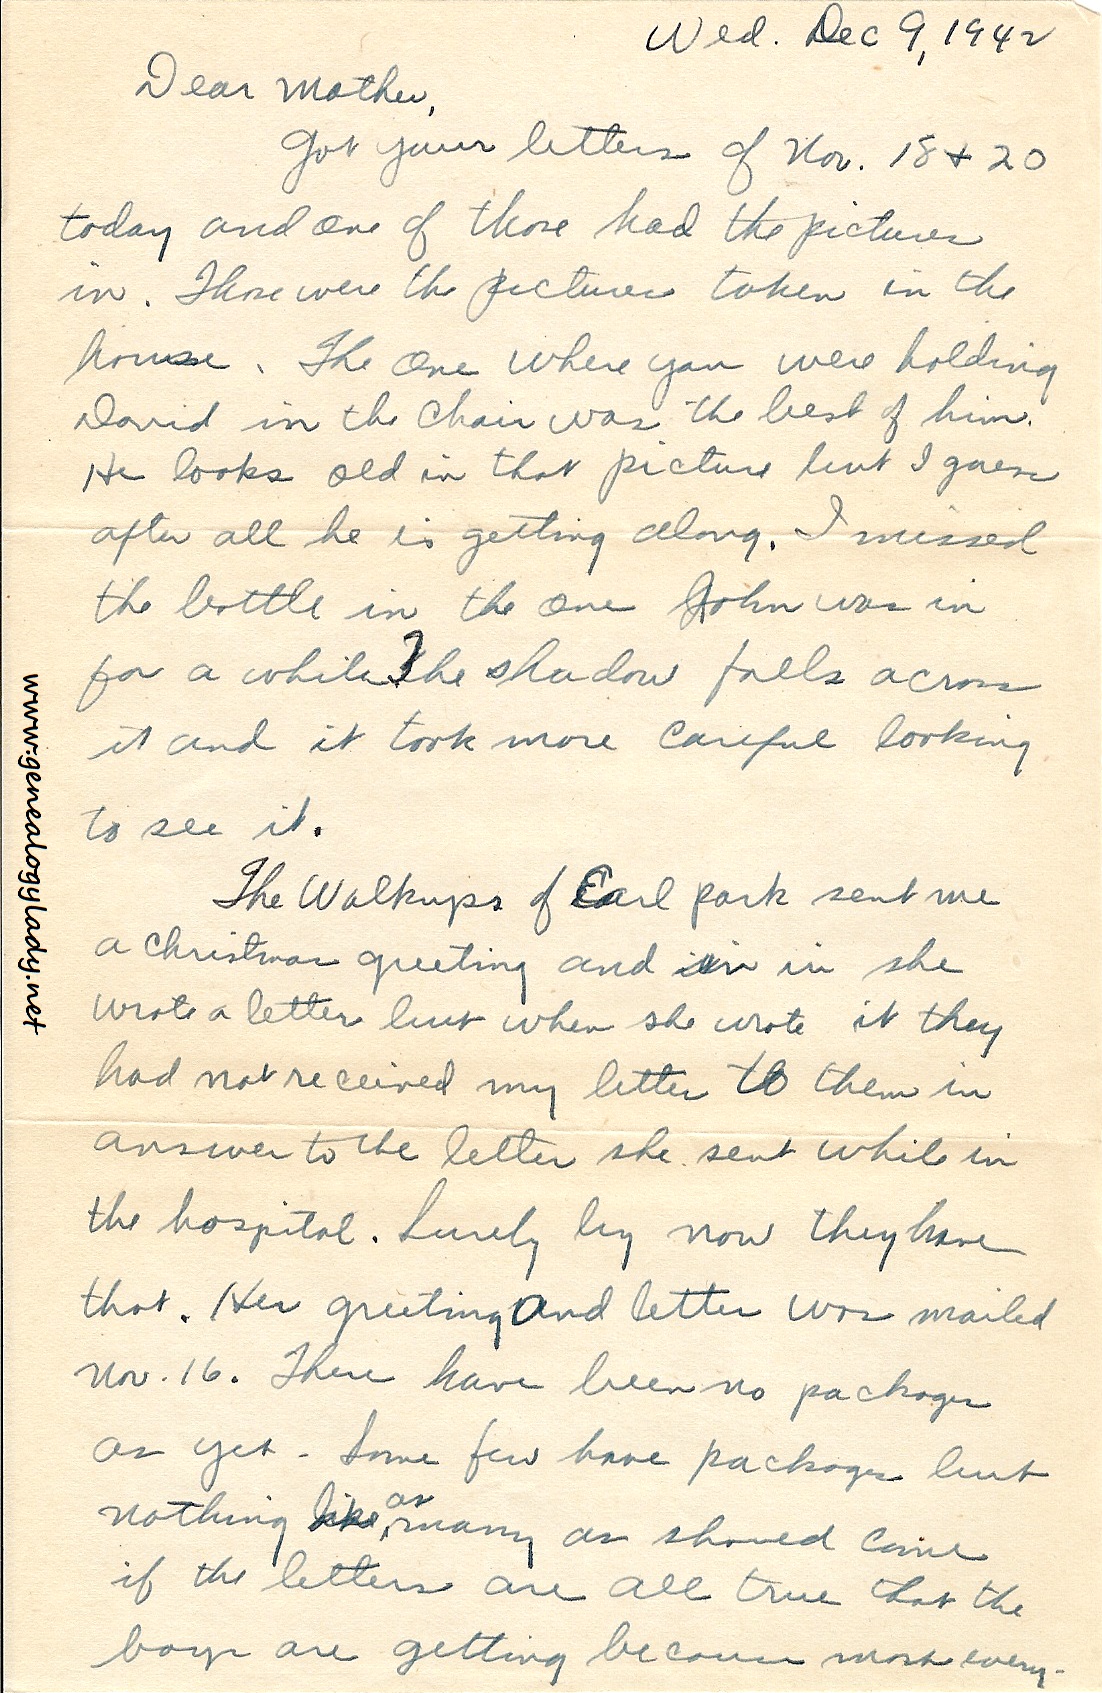 Wed. Dec 9, 1942
Dear Mother,
Got your letters of Nov. 18 & 20
today and one of those had the pictures
in. Those were the pictures taken in the
house. The one where you were holding
David in the chair was the best of him.
He looks old in that picture but I guess
after all he is getting along. I missed
the bottle in the one John was in
for a while. The shadow falls across
it and it took more careful looking
to see it.
The Walkups of Earl park sent me
a christmas greeting and in in she
wrote a letter but when she wrote it they
had not received my letter to them in
answer to the letter she sent while in
the hospital. Surely by now they have
that. Her greeting and letter was mailed
Nov. 16. There have been no packages
as yet - Some few have packages but
nothing like as many as should come
if the letters are all true that the
boys are getting because most every-
www.genealogylady.net